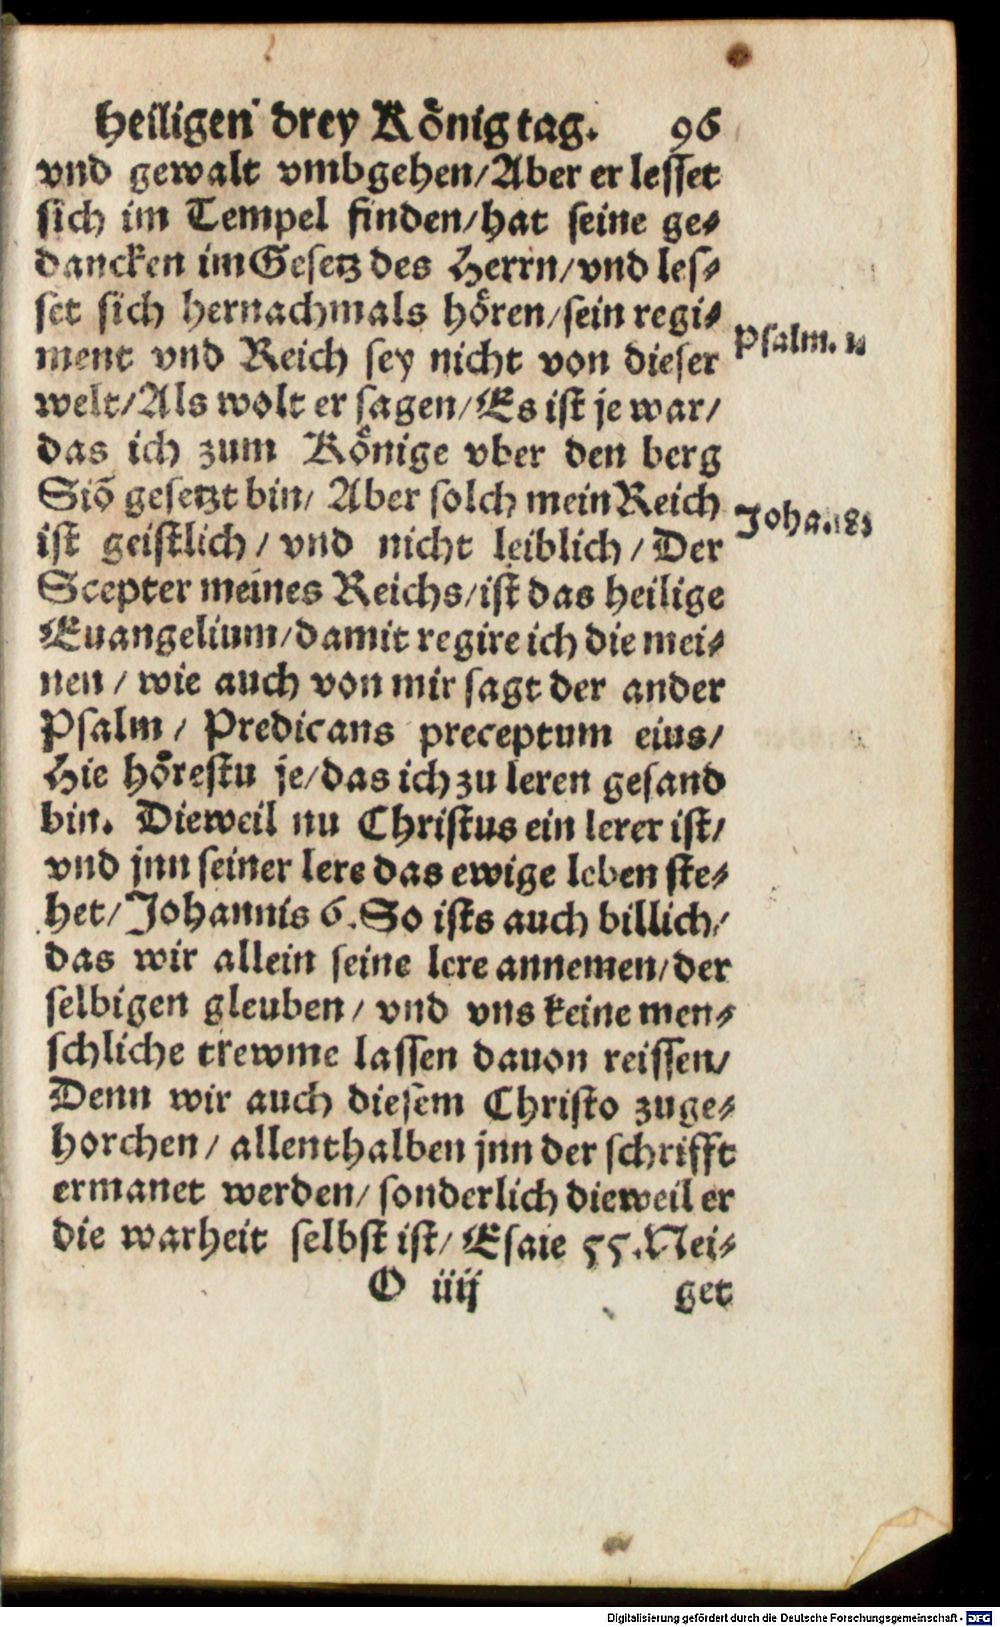 heiligen drey Königtag. 96
vnd gewalt vmbgehen/Aber er lesset
sich im Tempel finden/hat seine ge⸗
dancken im Gesetz des Herrn/vnd les⸗
set sich hernachmals hören/sein regi⸗
ment vnd Reich sey nicht von dieser
Psalm.
welt/Als wolt er sagen/Es ist je war/
das ich zum Könige vber den berg
Siō gesetzt bin/ Aber solch mein Reich
Johan.
ist geistlich/ vnd nicht leiblich/ Der
Scepter meines Reichs/ist das heilige
Euangelium/damit regire ich die mei⸗
nen/ wie auch von mir sagt der ander
Psalm/ Predicans preceptum eius/
Hie hörestu je/das ich zu leren gesand
bin. Dieweil nu Christus ein lerer ist/
vnd jnn seiner lere das ewige leben ste⸗
het/Johannis 6. So ists auch billich/
das wir allein seine lere annemen/der
selbigen gleuben/ vnd vns keine men⸗
schliche trewme lassen dauon reissen/
Denn wir auch diesem Christo zuge⸗
horchen/ allenthalben jnn der schrifft
ermanet werden/ sonderlich dieweil er
die warheit selbst ist/ Esaie 55. Nei⸗
O iiij get
Digitalisierung gefördert durch die Deutsche Forschungsgemeinschaft - DFG